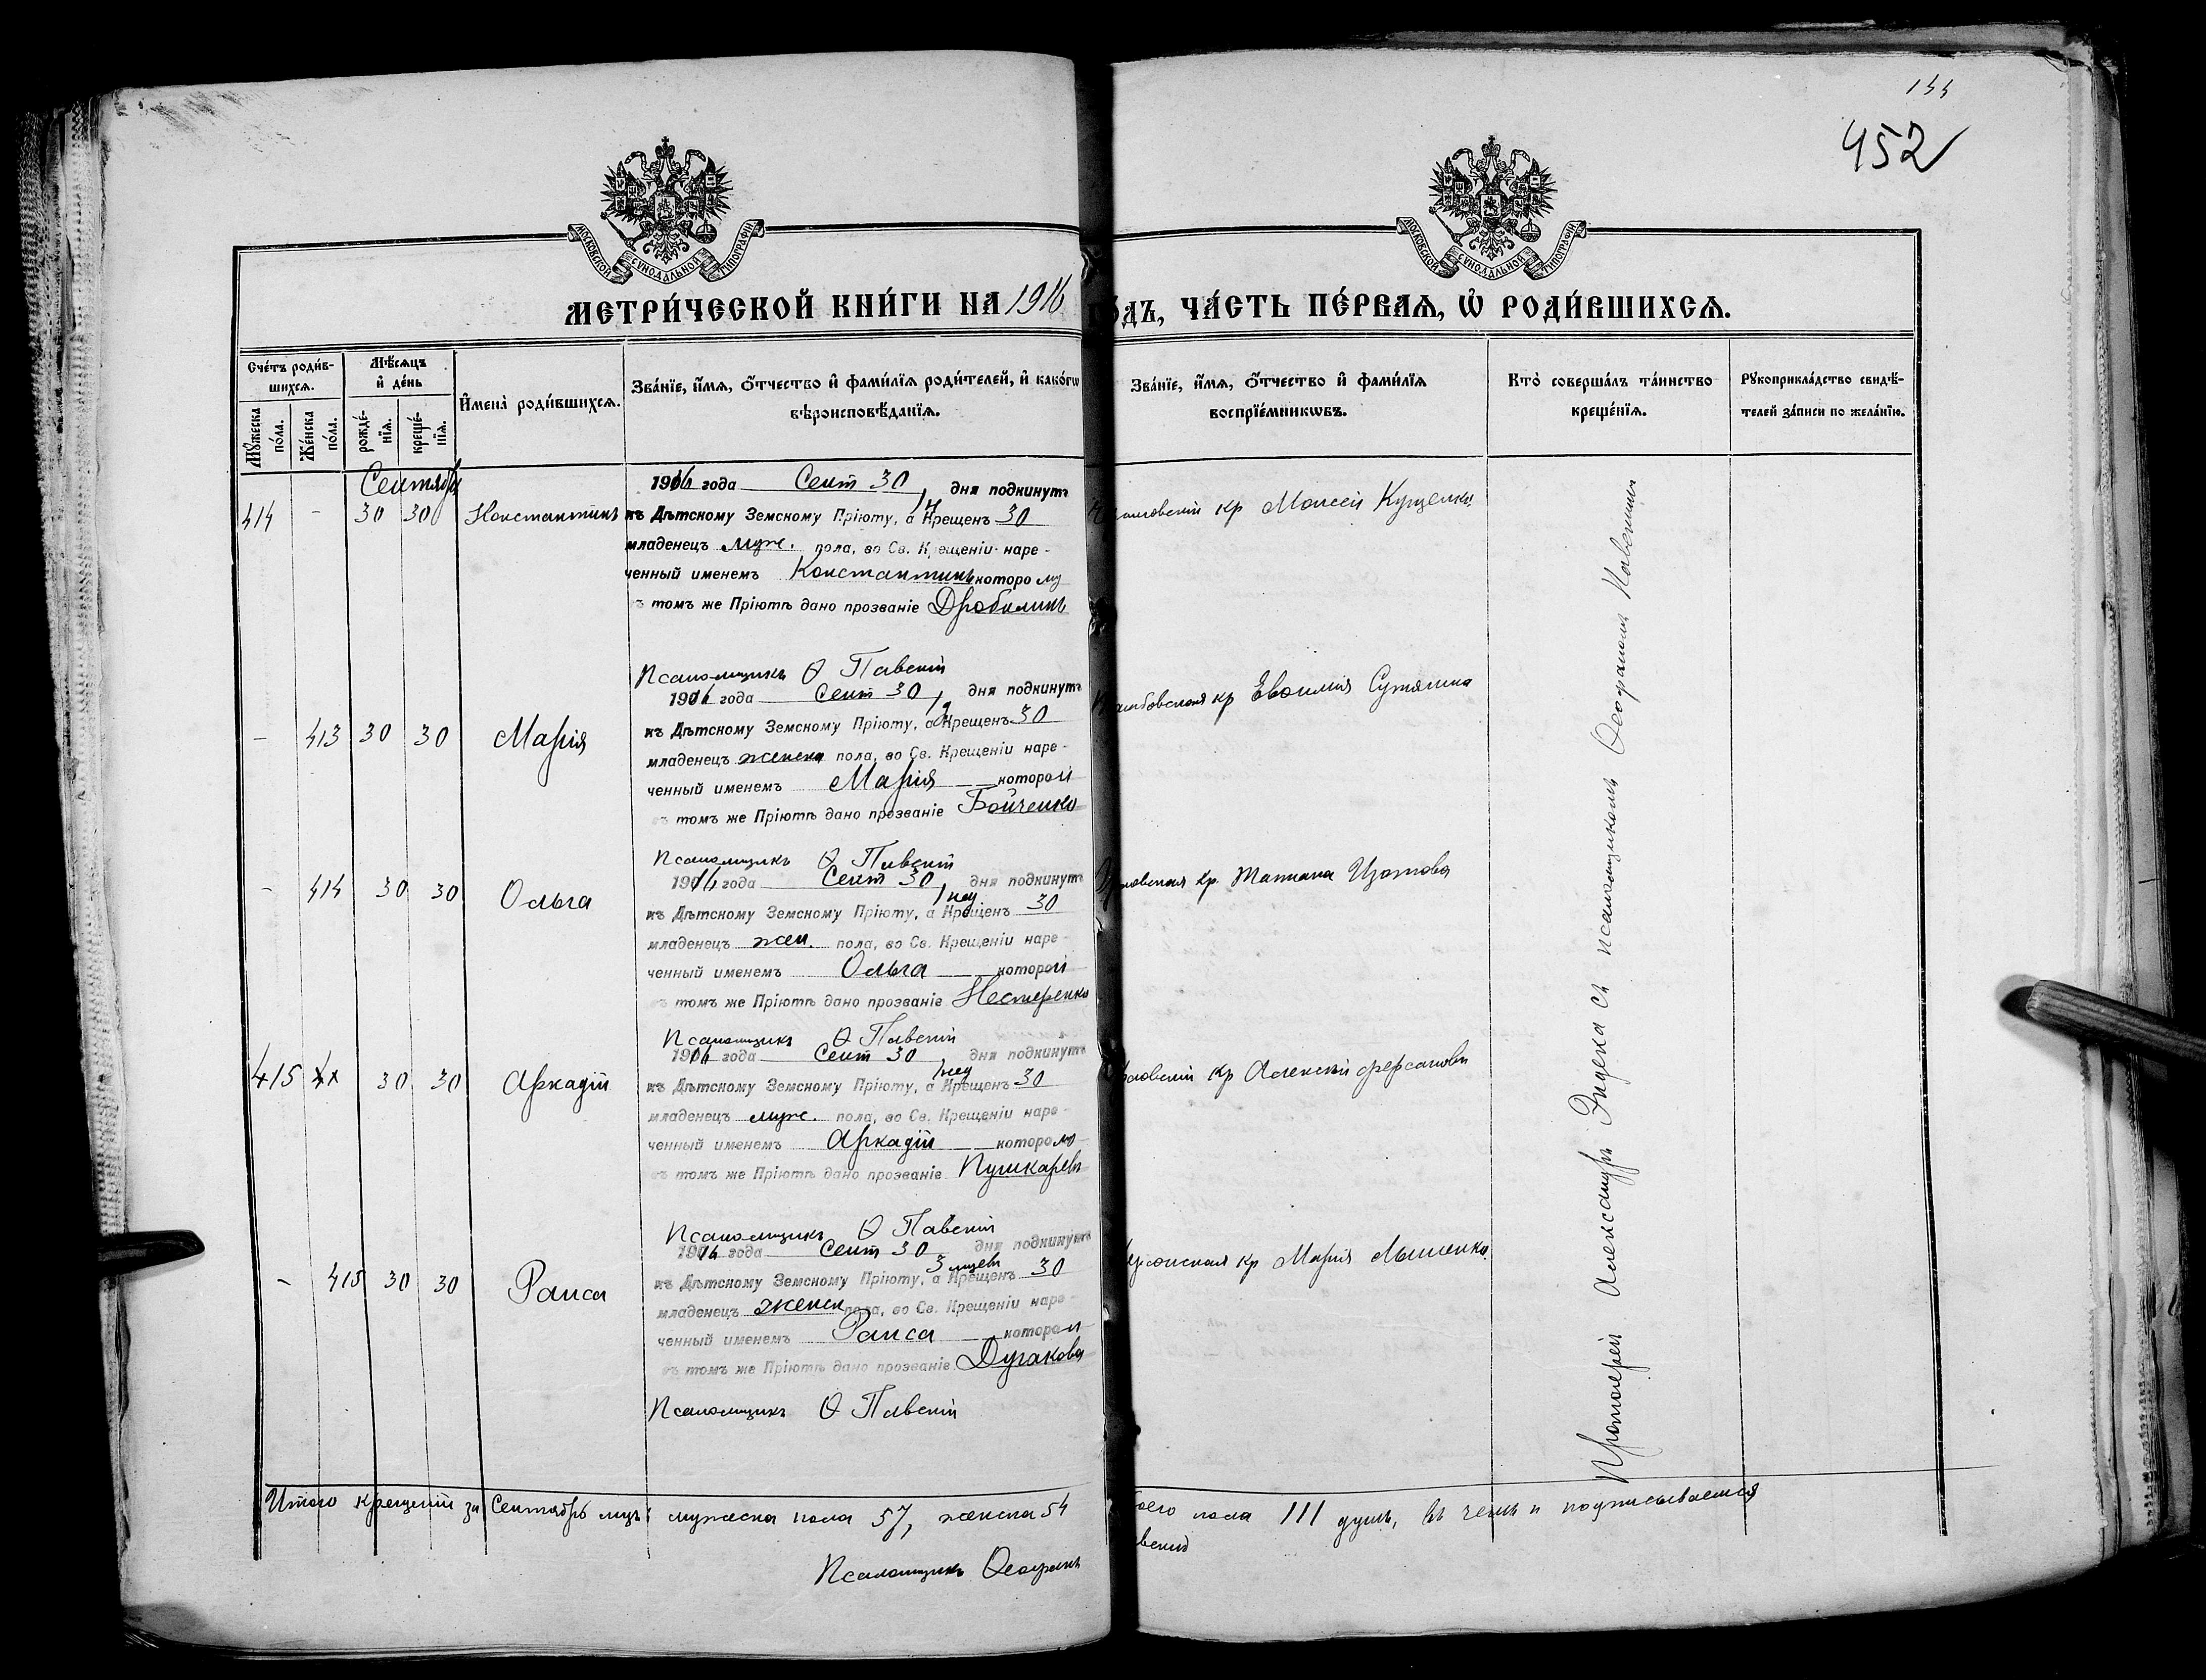 144
452
МОСКОВСКОЙ СѴНОДАЛЬНОЙ ТИПОГРАФІИ
МОСКОВСКОЙ СѴНОДАЛЬНОЙ ТИПОГРАФІИ
МЕТРИ́ЧЕСКОЙ КНИ́ГИ НА 1916
ДЪ, ЧА́СТЬ ПЕ́РВАѦ, Ѡ҆ РОДИ́ВШИХСѦ.
Сче́тъ роди́вшихсѧ.
Мꙋ́жеска по́ла.
Же́нска по́ла.
Мѣ́сѧцъ и҆ де́нь
рожде́нїѧ.
креще́нїѧ.
И҆мена̀ роди́вшихсѧ.
Зва́нїе, и҆́мѧ, ѻ҆́тчество и҆ фами́лїѧ роди́телей, и҆ како́гѡ
вѣроисповѣ́данїѧ.
Зва́нїе, и҆́мѧ, ѻ҆́тчество и҆ фами́лїѧ
воспрїе́мникѡвъ.
Кто̀ соверша́лъ та́инство
креще́нїѧ.
Рꙋкоприкла́дство свидѣ́телей за́писи по жела́нїю.
Сентябрь
414 - 30 30 Константинъ
1916 года Сент 30 дня подкинутъ
къ Дѣтскому Земскому Пріюту, а Крещенъ 30
младенецъ муж. пола, во Св. Крещеніи наре-
ченный именемъ Константинъ которому
въ томъ же Пріютѣ дано прозваніе
Псаломщикъ Ѳ Павскій
кр Моисей Кущенко
- 413 30 30 Марія
1916 года Сент 30 дня подкинутъ
къ Дѣтскому Земскому Пріюту, а Крещенъ 30
младенецъ женска пола, во Св. Крещеніи наре-
ченный именемъ Марія которой
въ томъ же Пріютѣ дано прозваніе Бойченко
Псаломщикъ Ѳ Павскій
кр Евѳимія
- 414 30 30 Ольга
1916 года Сент 30 дня подкинутъ
1 нед
къ Дѣтскому Земскому Пріюту, а Крещенъ 30
младенецъ жен. пола, во Св. Крещеніи наре-
ченный именемъ Ольга которой
въ томъ же Пріютѣ дано прозваніе Нестеренко
Псаломщикъ Ѳ Павскій
кр. Татіана Изотова
415 30 30 Аркадій
1916 года Сент 30 дня подкинутъ
1 нед
къ Дѣтскому Земскому Пріюту, а Крещенъ 30
младенецъ муж. пола, во Св. Крещеніи наре-
ченный именемъ Аркадій которому
въ томъ же Пріютѣ дано прозваніе Пушкаревъ
Псаломщикъ Ѳ Павскій
кр Алексій
- 415 30 30 Раиса
1916 года Сент 30 дня подкинутъ
къ Дѣтскому Земскому Пріюту, а Крещенъ 30
младенецъ женск пола, во Св. Крещеніи наре-
ченный именемъ Раиса которой
въ томъ же Пріютѣ дано прозваніе Дугакова
Псаломщикъ Ѳ Павскій
кр Марія
Протоіерей Александръ съ псаломщикомъ Ѳеофаномъ Павскимъ
Итого крещеній за Сентябрь мцъ: мужеска пола 57, женска 54
оего пола 111 душъ, въ чемъ и подписываемся
Псаломщикъ Ѳеофанъ
вскій